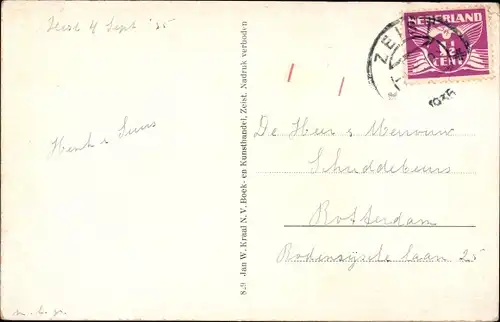 Zeist 4 Sept '35
Henk &
m. b. gr.
8.20 Jan W. Kraal N.V. Boek- en Kunsthandel, Zeist. Nadruk verboden
NEDERLAND
1½
CENT
ZEI
1935
De Heer & Mevrouw
Schuddebeurs
Rotterdam
Rodenrijsche laan 25